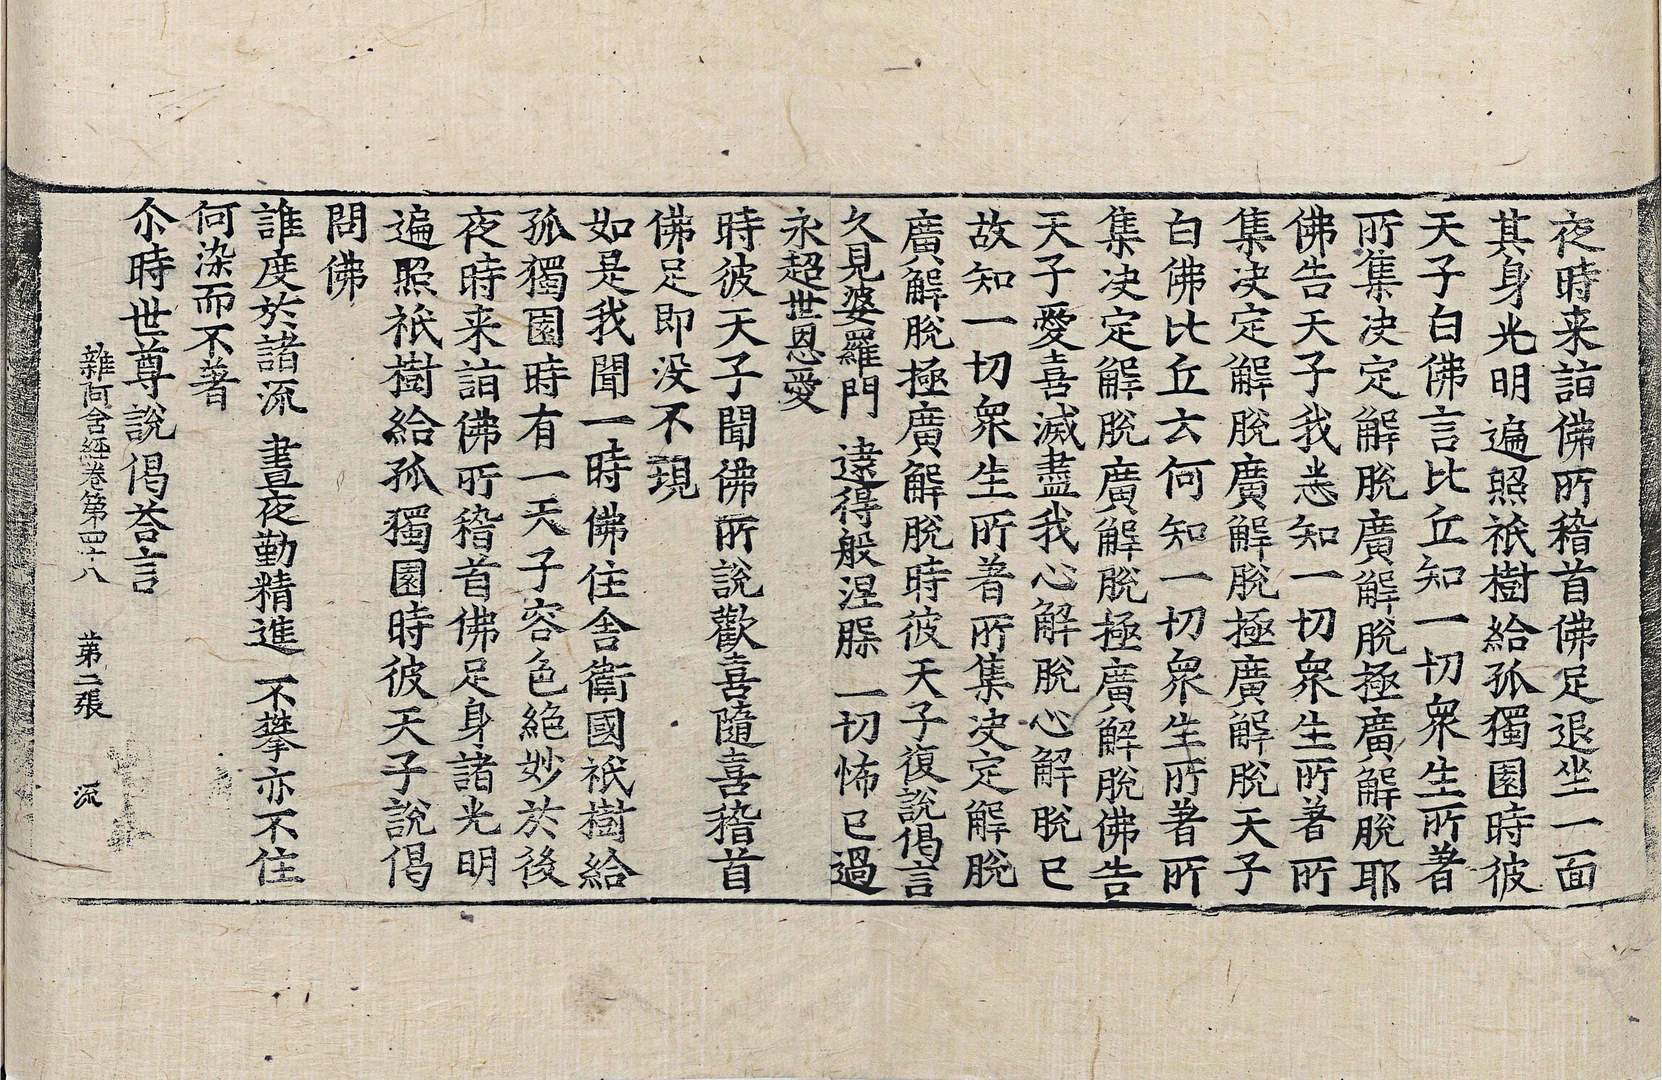 夜時来詣佛所稽首佛足退坐一面
其身光明遍照祇樹給孤獨園時彼
天子白佛言比丘知一切衆生所著
所集决定解脫廣解脫極廣解脫耶
佛告天子我悉知一切衆生所著所
集决定解脫廣解脫極廣解脫天子
白佛比丘云何知一切衆生所著所
集决定解脫廣解脫極廣解脫佛告
天子愛喜滅盡我心解脫心解脫已
故知一切衆生所著所集决定解脫
廣解脫極廣解脫時彼天子復說偈言
久見婆羅門 逮得般涅槃 一切怖已過
永超世恩愛
時彼天子聞佛所說歡喜隨喜稽首
佛足即没不現
如是我聞一時佛住舍衛國祇樹給
孤獨園時有一天子容色絶妙於後
夜時来詣佛所稽首佛足身諸光明
遍照祇樹給孤獨園時彼天子說偈
問佛
誰度於諸流 晝夜勤精進 不攀亦不住
何染而不著
尒時世尊說偈荅言
雜阿含經卷第四十八 苐二張 流